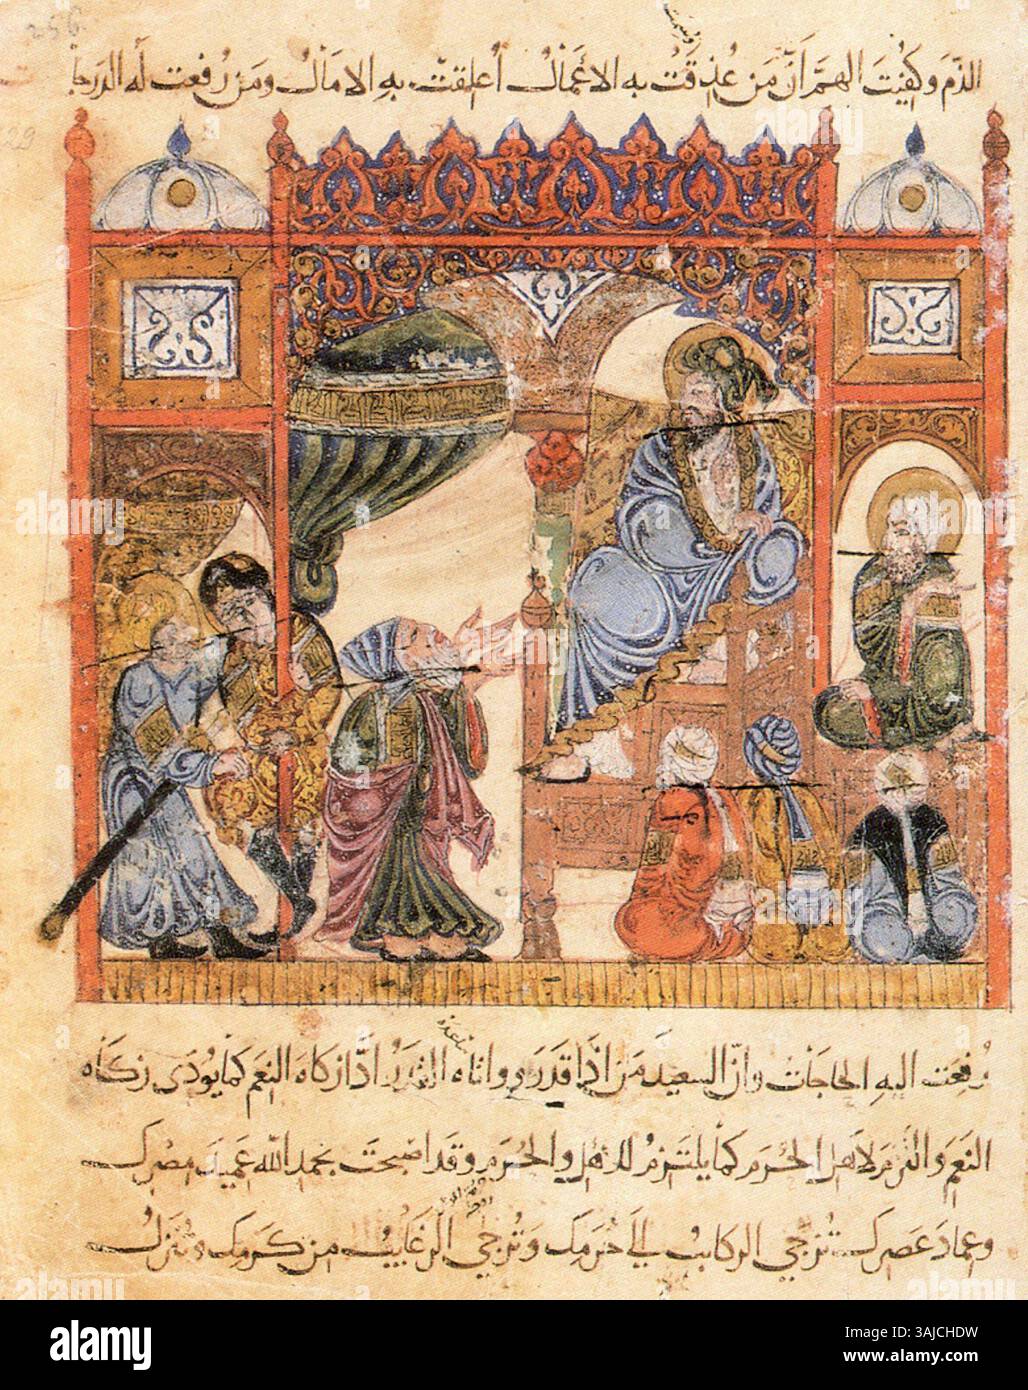 256
29
وسمت
الذم وكفيت الهم أن من عذقت به الأعمال أعلقت به الآمال ومن رفعت له الدرجات
رفعت إليه الحاجات وأن السعيد من إذا قدر وواتاه القدر أدى زكاة النعم كما يؤدي زكاة
النعم والتزم لأهل الحرم كما يلتزم للأهل والحرم وقد أصبحت بحمد الله عميد مصرك
وعماد عصرك تزجى الركائب إلى حرمك وترجى الرغائب من كرمك وتنزل
alamy
Image ID: 3AJCHDW
www.alamy.com